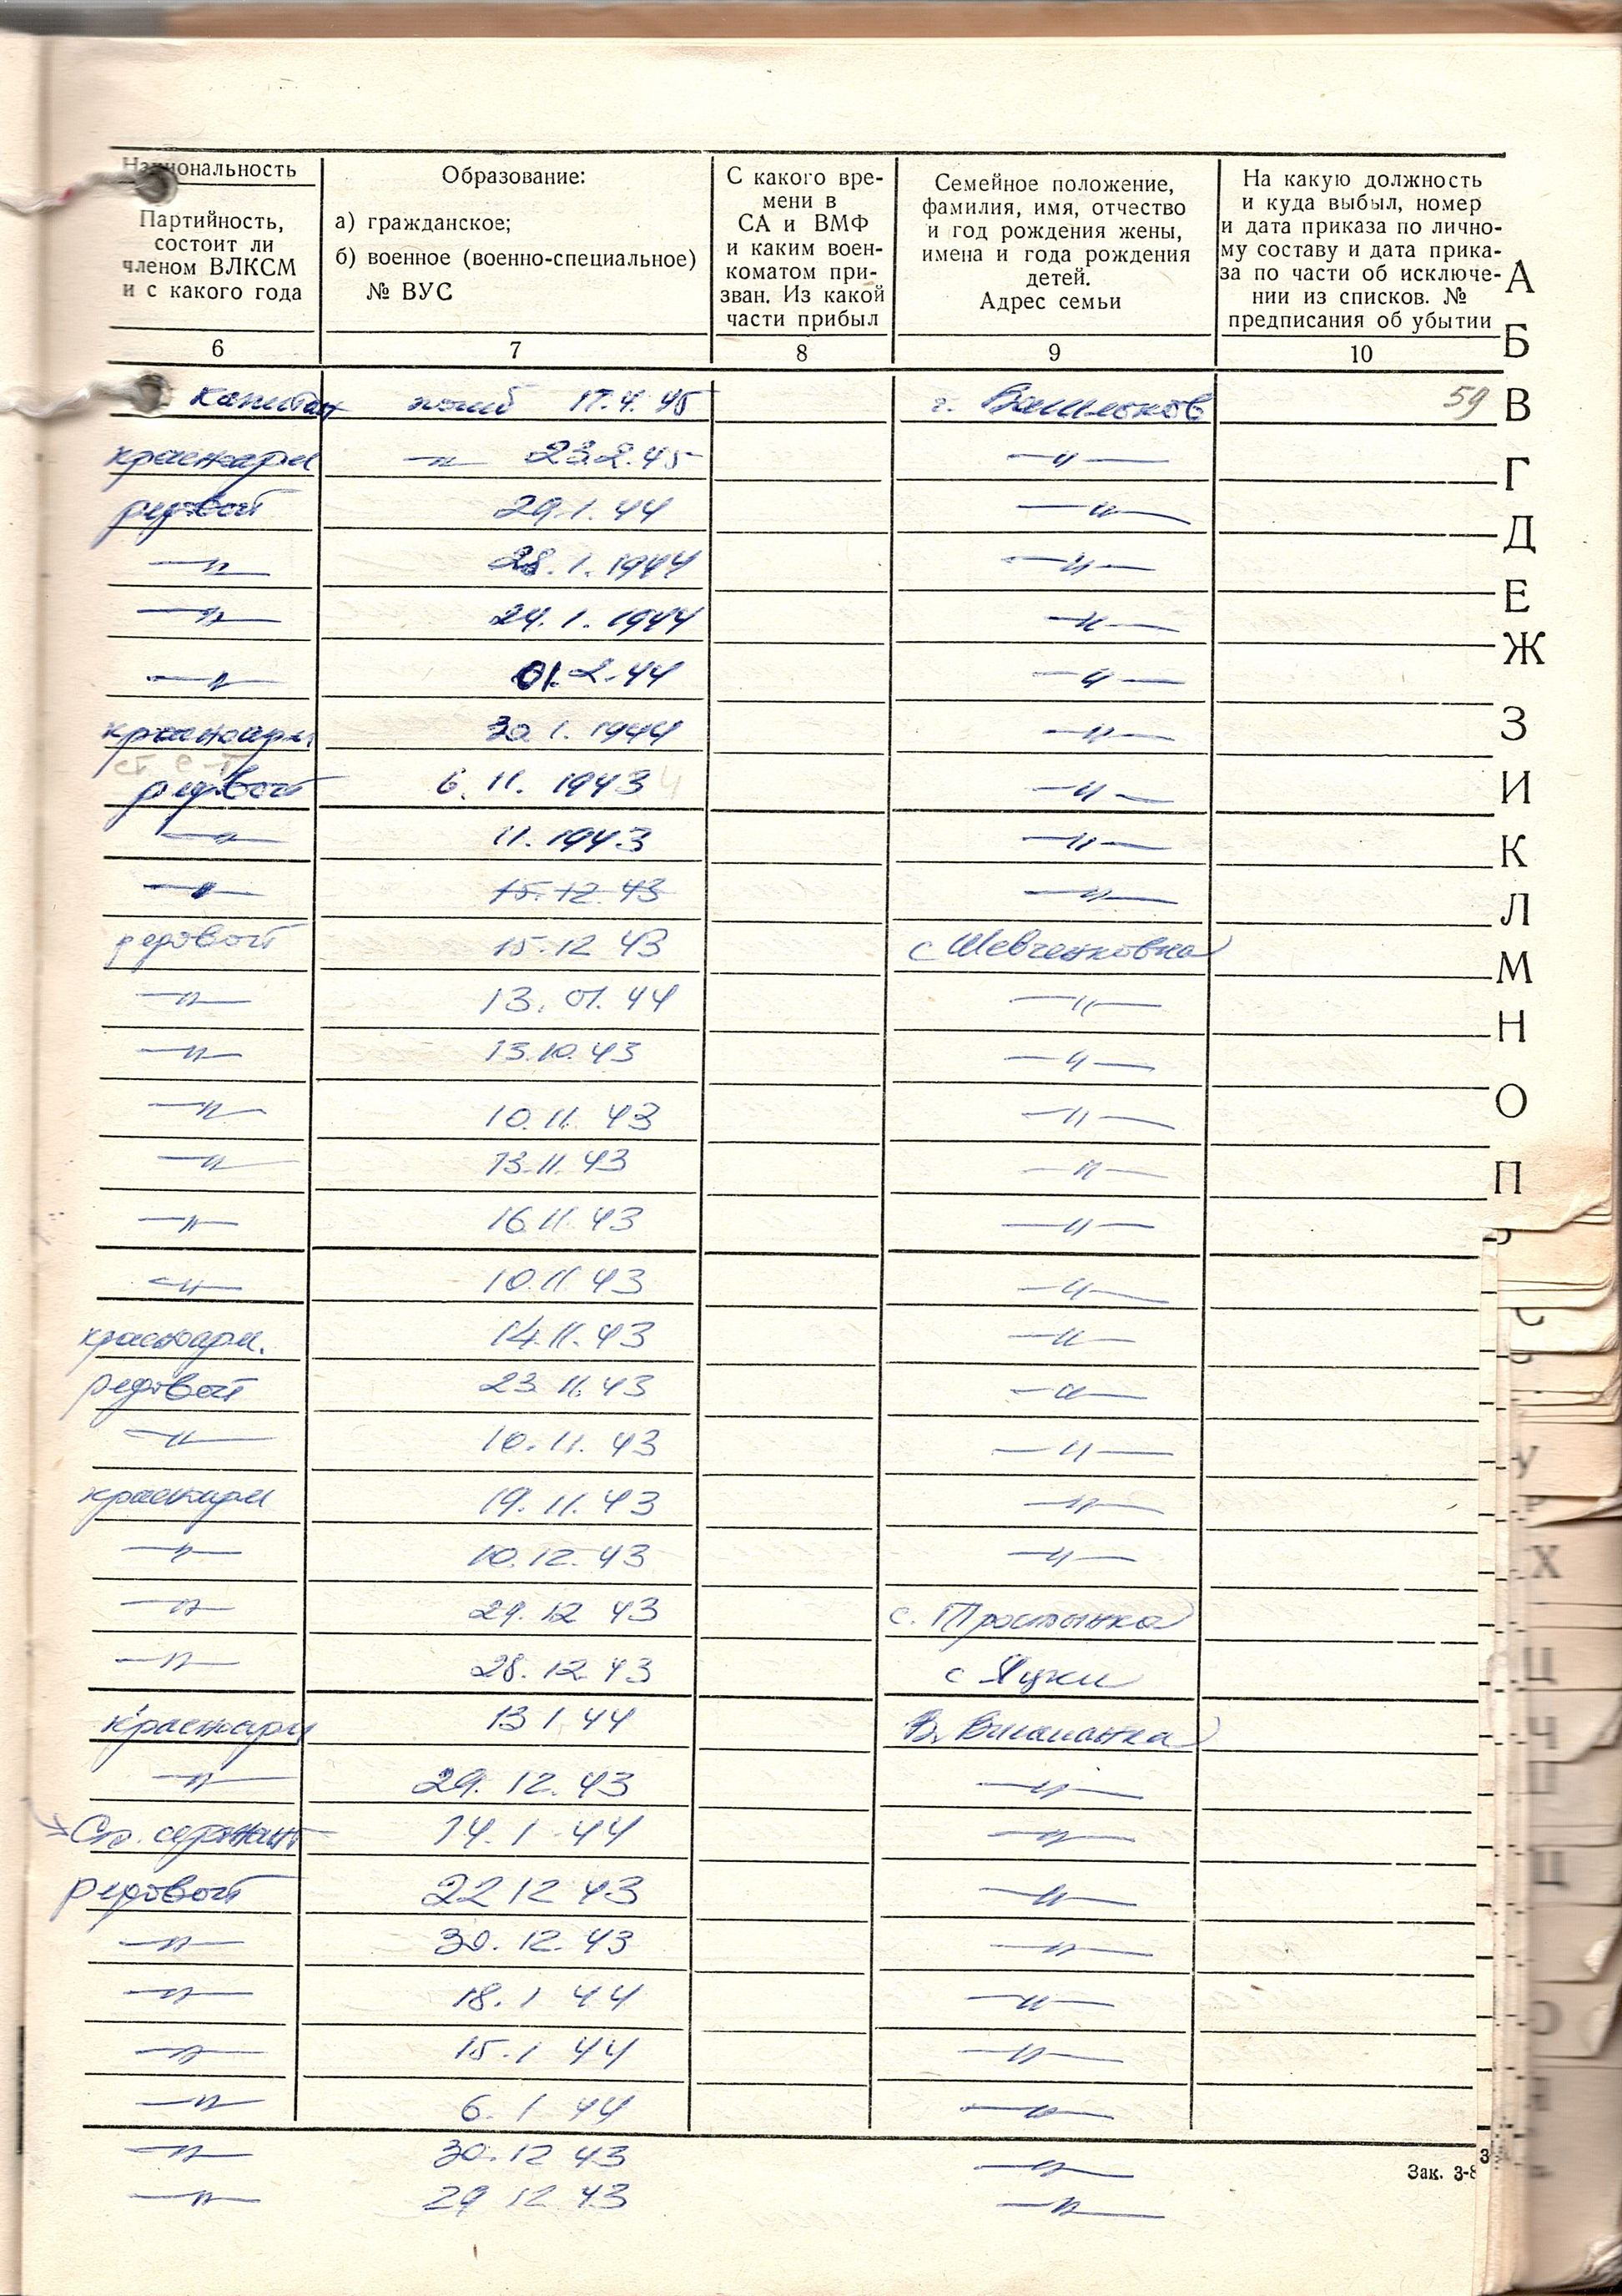 Национальность
Партийность,
состоит ли
членом ВЛКСМ
и с какого года
Образование:
а) гражданское;
б) военное (военно-специальное)
№ ВУС
С какого вре-
мени в
СА и ВМФ
и каким воен-
коматом при-
зван. Из какой
части прибыл
Семейное положение,
фамилия, имя, отчество
и год рождения жены,
имена и года рождения
детей.
Адрес семьи
На какую должность
и куда выбыл, номер
и дата приказа по лично-
му составу и дата прика-
за по части об исключе-
нии из списков. №
предписания об убытии
6 7 8 9 10
капитан погиб 17.4.45 г. Васильков 59
красноарм —"— 23.2.45 —"—
рядовой 29.1.44 —"—
—"— 28.1.1944 —"—
—"— 24.1.1944 —"—
—"— 01.2.44 —"—
красноарм 30.1.1944 —"—
рядовой 6.11.1943 —"—
—"— 11.1943 —"—
—"— 15.12.43 —"—
рядовой 15.12 43 с Шевченковка
—"— 13.01.44 —"—
—"— 13.10.43 —"—
—"— 10.11.43 —"—
—"— 13.11.43 —"—
—"— 16.11.43 —"—
—"— 10.11.43 —"—
красноарм. 14.11.43 —"—
рядовой 23.11.43 —"—
—"— 10.11.43 —"—
красноарм 19.11.43 —"—
—"— 10.12.43 —"—
—"— 29.12 43 с. Тростынка
—"— 28.12.43 с Яцки
красноарм 13 1 44 В.
—"— 29.12.43 —"—
Ст. сержант 14.1 44 —"—
рядовой 22 12 43 —"—
—"— 30.12.43 —"—
—"— 18.1 44 —"—
—"— 15.1 44 —"—
—"— 6.1 44 —"—
—"— 30.12 43 —"—
—"— 29 12 43 —"—
Зак. 3-8
А
Б
В
Г
Д
Е
Ж
З
И
К
Л
М
Н
О
П
С
У
Х
Ц
Ч